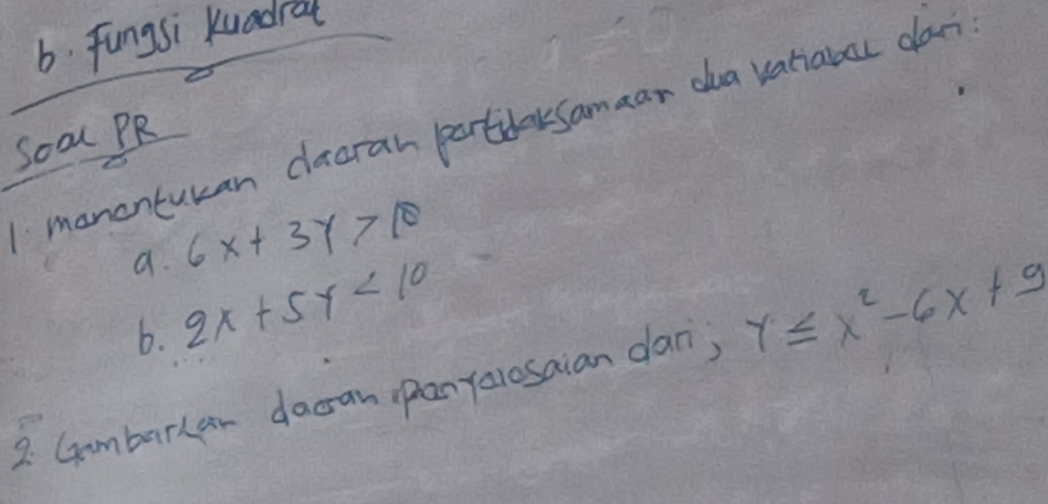 b. Fungsi Kuadrat
Soal PR
1. menentukan daerah pertidaksamaan dua variabel dari:
a. 6x + 3y > 18
b. 2x + 5y < 10
2. Gambarkan daerah penyelesaian dari; y ≤ x² - 6x + 9